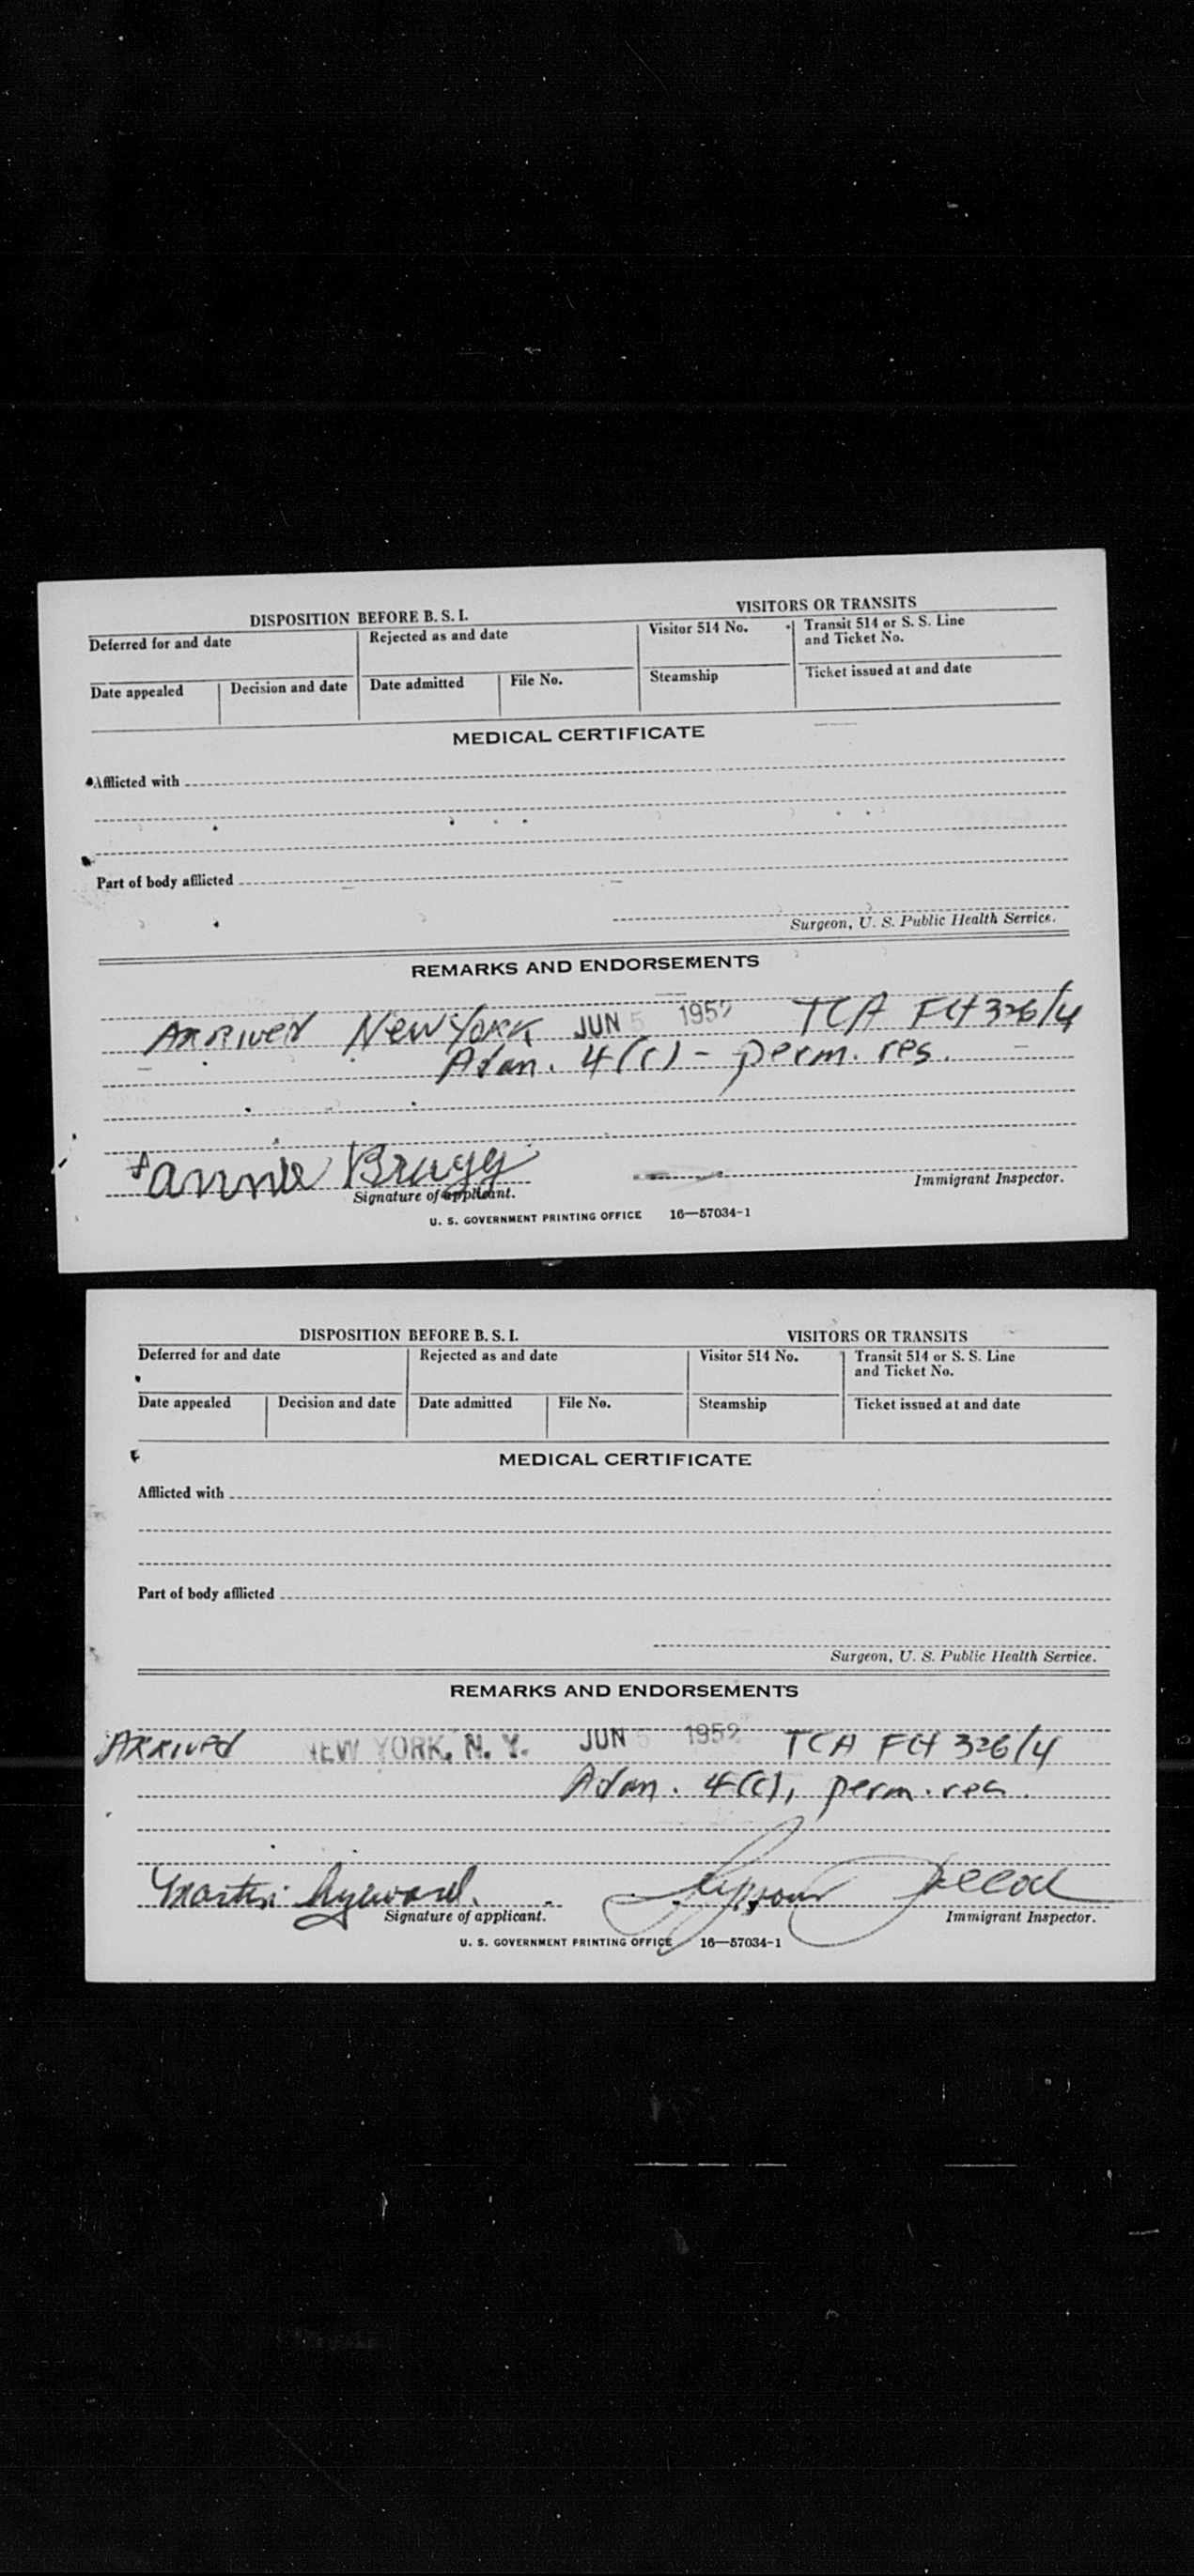 DISPOSITION BEFORE B. S. I. VISITORS OR TRANSITS
Deferred for and date Rejected as and date Visitor 514 No. Transit 514 or S. S. Line and Ticket No.
Date appealed Decision and date Date admitted File No. Steamship Ticket issued at and date
MEDICAL CERTIFICATE
Afflicted with
Part of body afflicted
Surgeon, U. S. Public Health Service.
REMARKS AND ENDORSEMENTS
ARRIVED NEW YORK JUN 5 1952 TCA FLT 326/4
Adm. 4(c) - perm. res.
Fannie Bragg
Signature of applicant. Immigrant Inspector.
U. S. GOVERNMENT PRINTING OFFICE 16—57034-1
DISPOSITION BEFORE B. S. I. VISITORS OR TRANSITS
Deferred for and date Rejected as and date Visitor 514 No. Transit 514 or S. S. Line and Ticket No.
Date appealed Decision and date Date admitted File No. Steamship Ticket issued at and date
MEDICAL CERTIFICATE
Afflicted with
Part of body afflicted
Surgeon, U. S. Public Health Service.
REMARKS AND ENDORSEMENTS
ARRIVED NEW YORK, N. Y. JUN 5 1952 TCA FLT 326/4
Adm. 4(c), perm. res.
Martin
Signature of applicant. Immigrant Inspector.
U. S. GOVERNMENT PRINTING OFFICE 16—57034-1